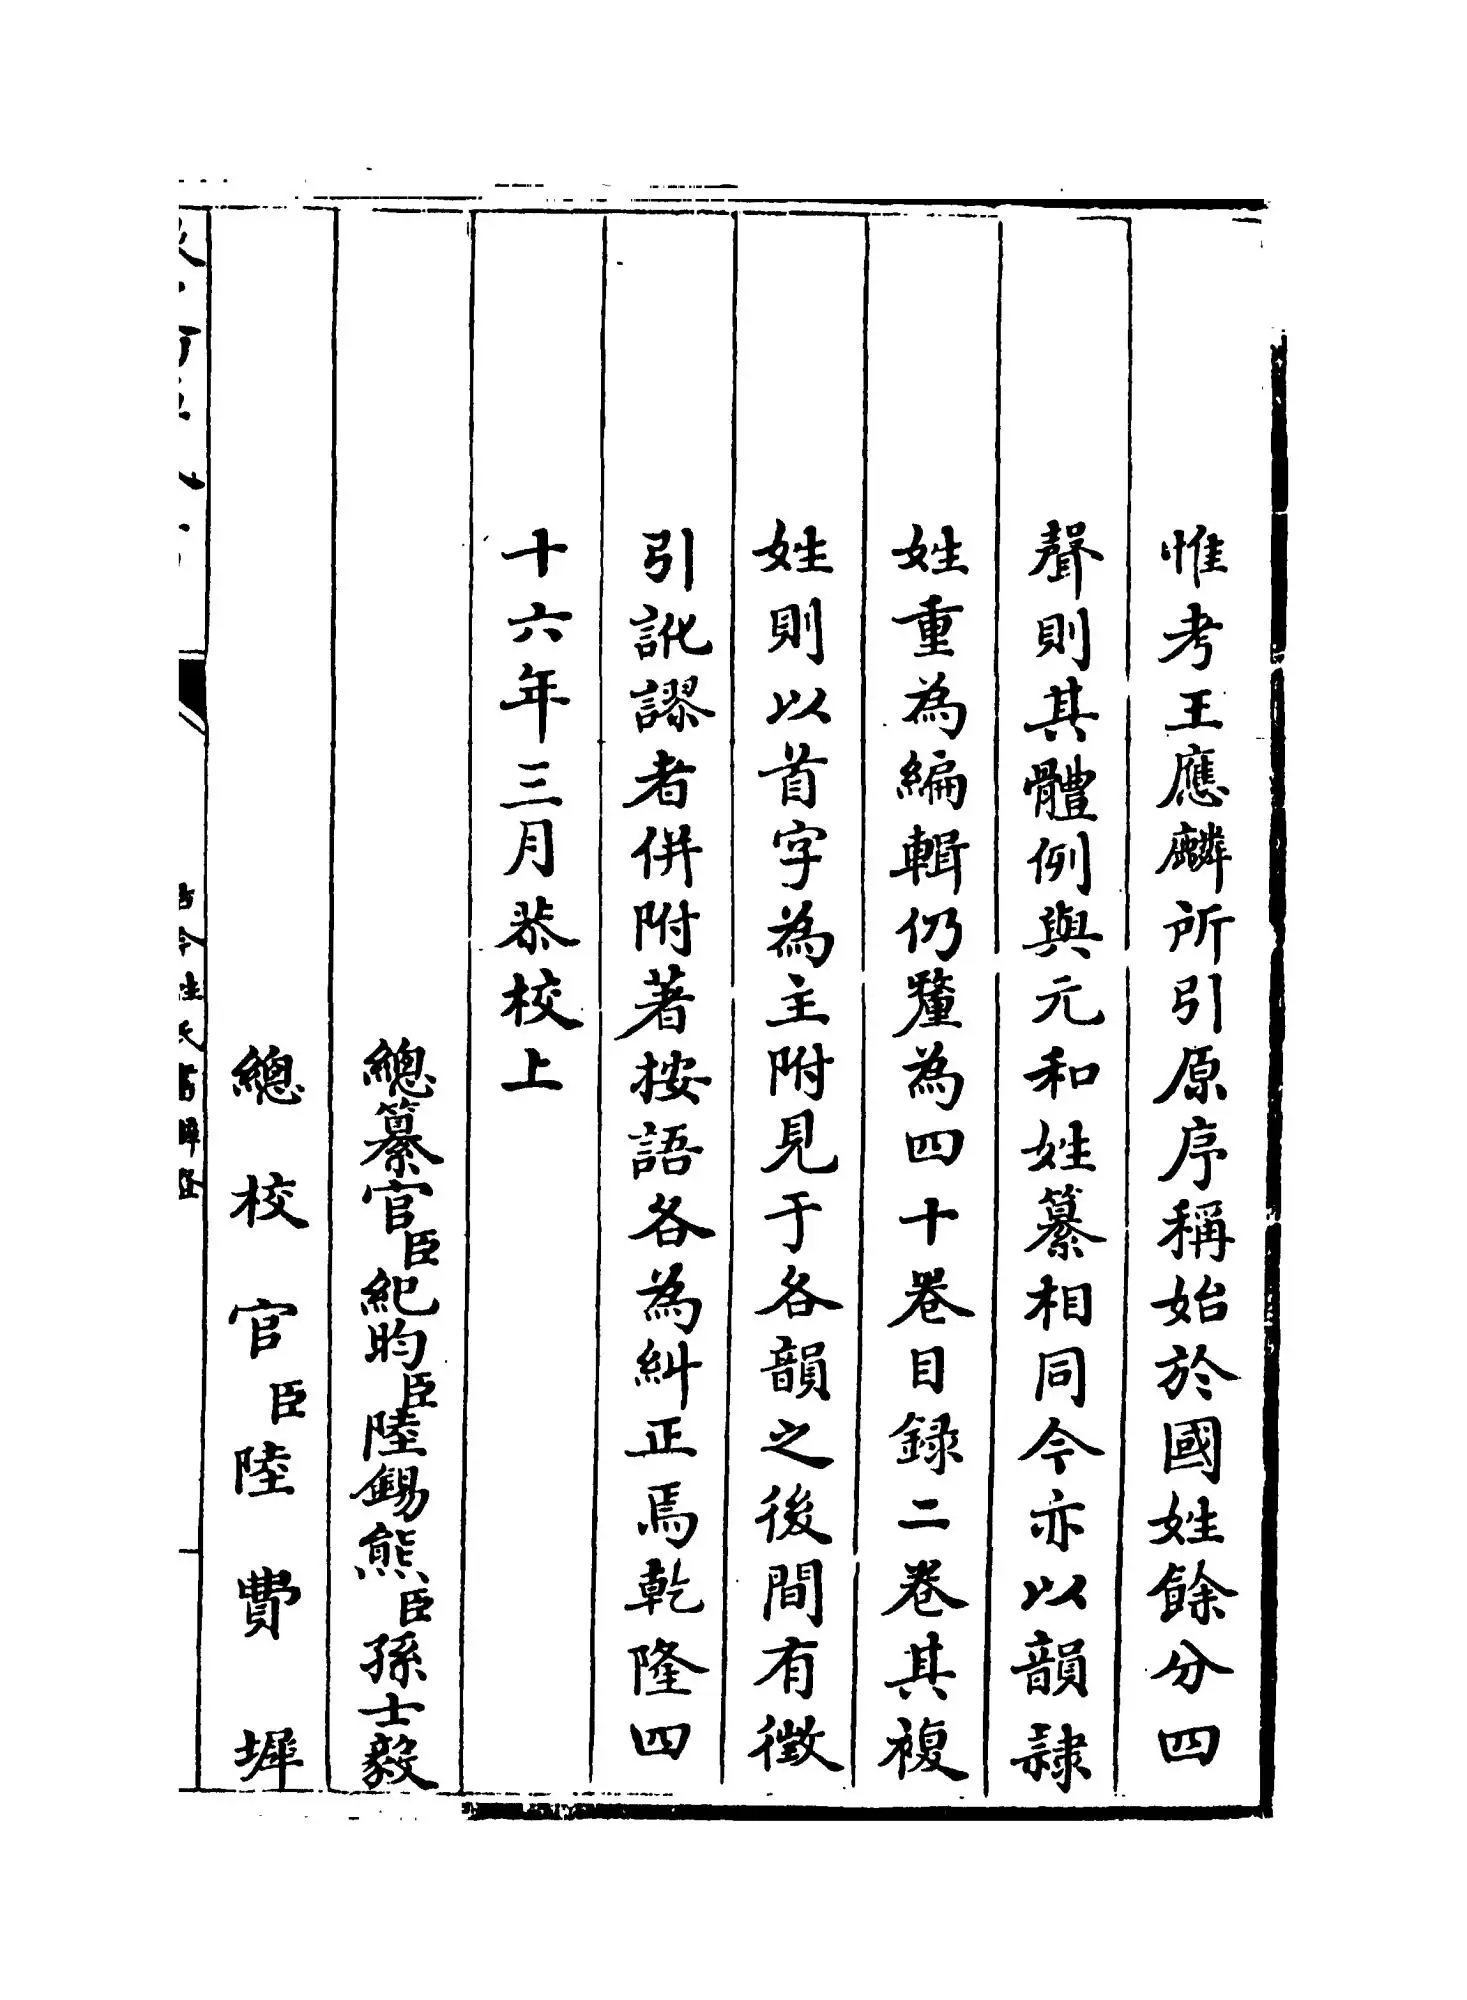 惟考王應麟所引原序稱始於國姓餘分四
聲則其體例與元和姓纂相同今亦以韻隷
姓重為編輯仍釐為四十卷目録二卷其複
姓則以首字為主附見于各韻之後間有徴
引訛謬者併附著按語各為糾正焉乾隆四
十六年三月恭校上
總纂官臣紀昀臣陸錫熊臣孫士毅
總校官臣陸費墀
古今姓氏書辯證